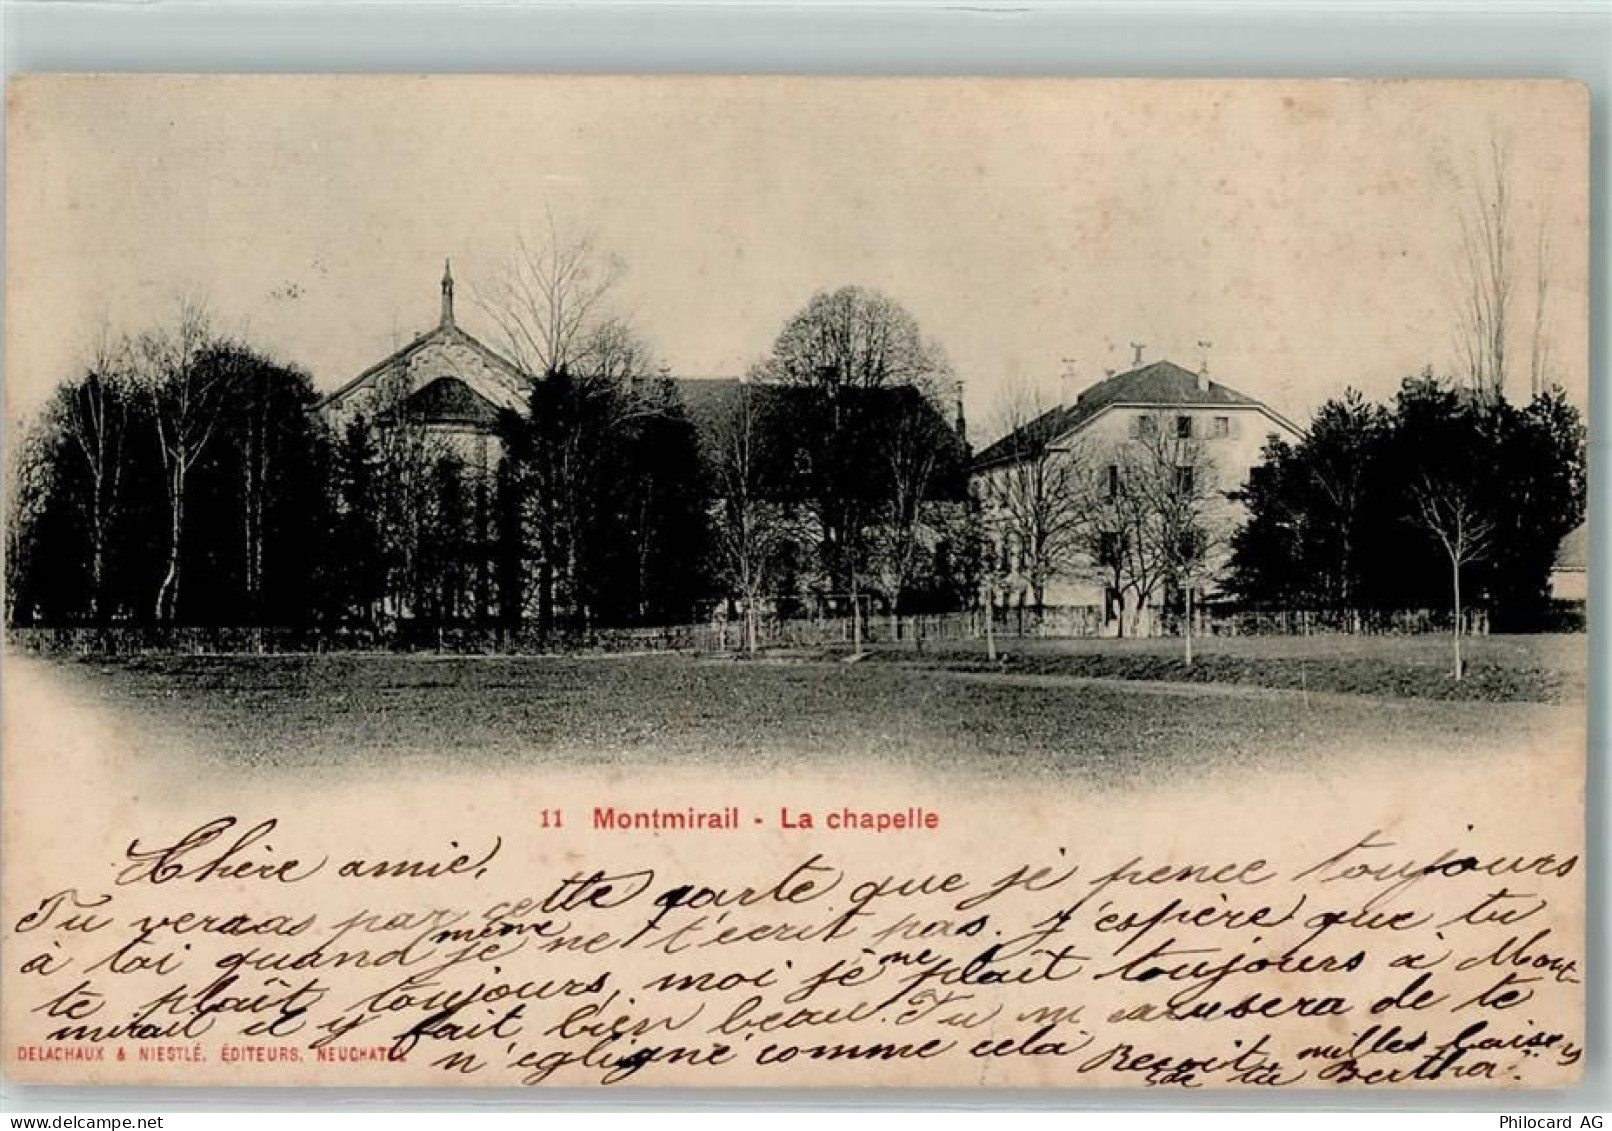 11 Montmirail - La chapelle
Chère amie,
Tu verras par cette carte que je pence toujours
à toi quand même je ne t'écrit pas. J'espère que tu
te plaît toujours, moi je me plaît toujours à Mont-
mirail il y fait bien beau. Tu m'excusera de te
n'egligné comme cela Reçoit milles baisers
de ta Bertha.
DELACHAUX & NIESTLÉ, ÉDITEURS, NEUCHATEL
www.delcampe.net
Philocard AG